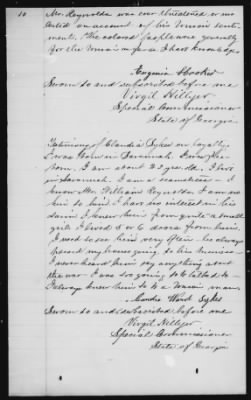 10
Mr. Reynolds was ever threatened or mo
lested on account of his Union senti
ments. The colored people were generally
for the Union so far as I have knowledge
Eugenia Crocker
Sworn to and subscribed before me
Virgil Hillyer
Special Commissioner
State of Georgia
Testimony of Claudia Sykes on loyalty.
I was born in Savannah. I was
born. I am about 23 years old. I live
in Savannah. I am a
know Mr. William Reynolds I am no
kin to him I have no interest in his
claim I knew him from quite a small
girl. I lived 5 or 6 doors from him.
I used to see him very often. He always
passed my house going to his business
I never heard him say anything about
the war. I was too young to be talked to
I always knew him to be a Union man
Claudia Ward Sykes
Sworn to and subscribed before me
Virgil Hillyer
Special Commissioner
State of Georgia